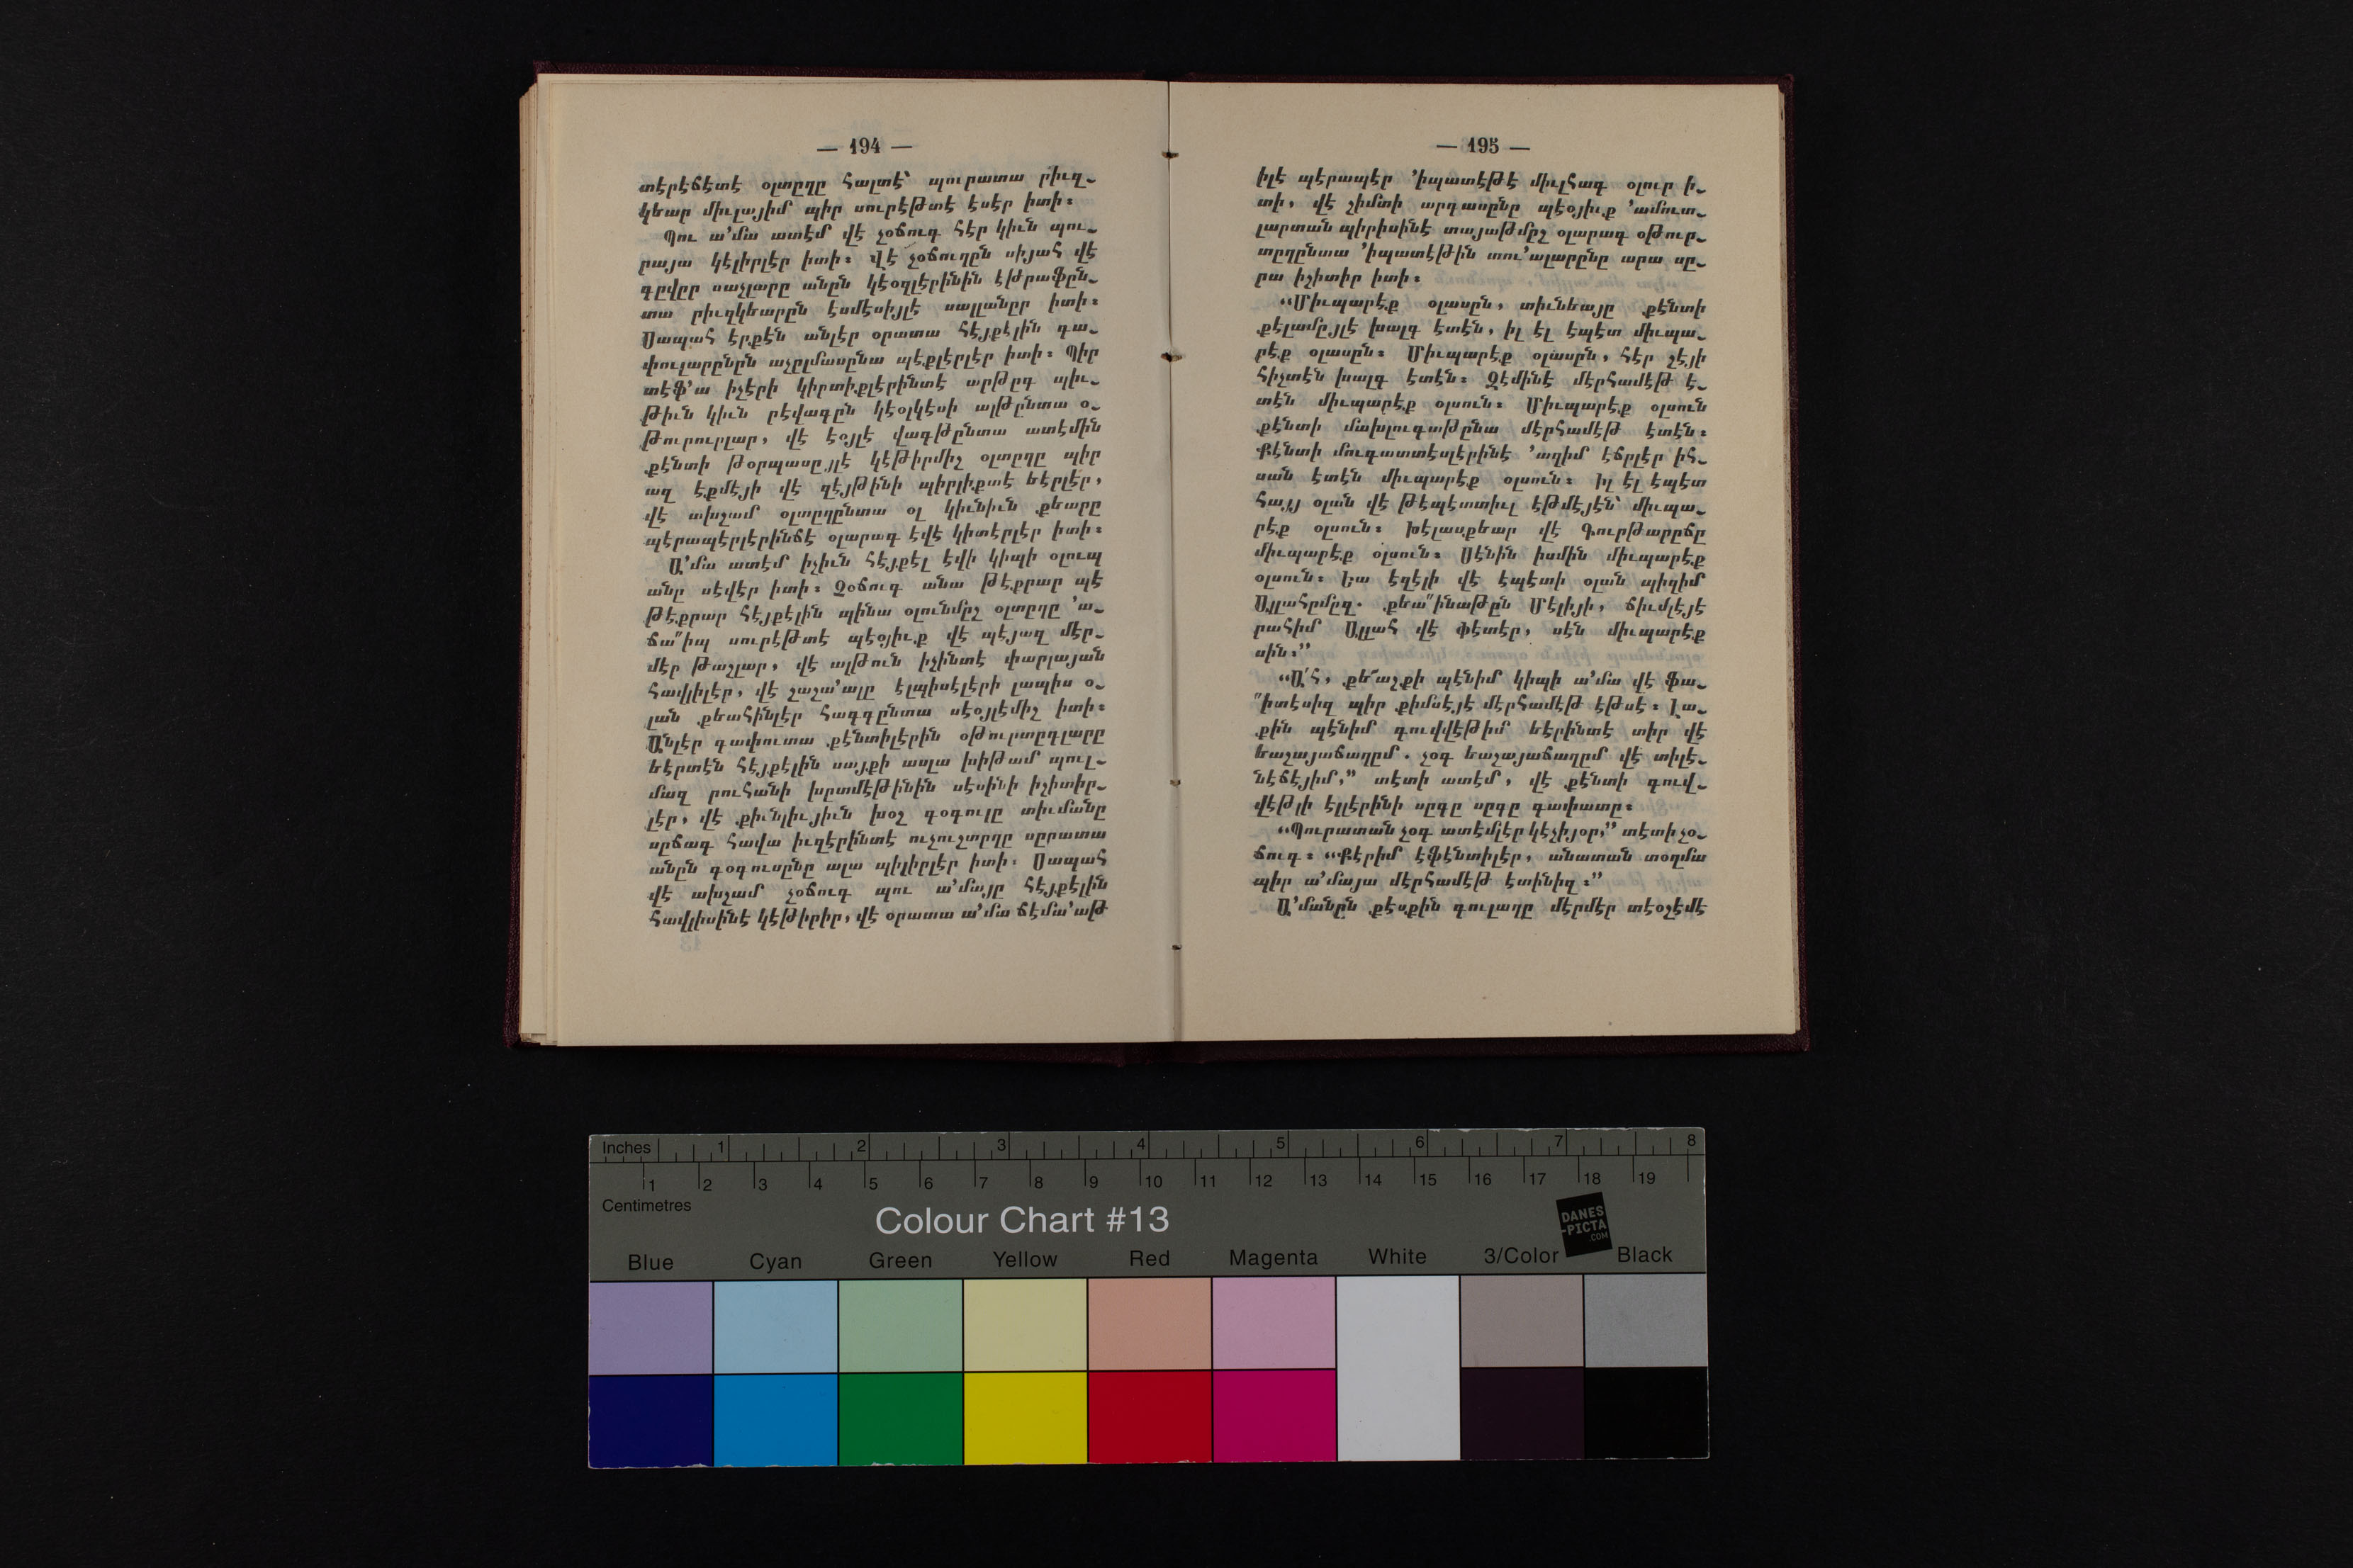 — 194 —
տէրէճէտէ օլտըղը հալտէ՝ պուրատա րիւզ֊
կեար միւլայիմ պիր սուրէթտէ էսէր իտի։
Պու ա՚մա ատէմ վէ չօճուգ հէր կիւն պու֊
րայա կէլիրլէր իտի։ Վէ չօճուղըն սիյահ վէ
գըվըր սաչլարը անըն կէօզլէրինին էթրաֆըն֊
տա րիւզկեարըն էսմէսիյլէ սալլանըր իտի։
Սապահ էրքէն անլէր օրատա հէյքէլին գա֊
փուլարընըն աչըլմասընա պէքլէրլէր իտի։ Պիր
տէֆ՚ա իչէրի կիրտիքլէրինտէ արթըգ պիւ֊
թիւն կիւն րէվագըն կէօլկէսի ալթընտա օ֊
թուրուրլար, վէ էօյլէ վագթընտա ատէմին
քէնտի թօրպասըյլէ կէթիրմիչ օլտըղը պիր
ազ էքմէյի վէ զէյթինի պիրլիքտէ եէրլէր,
վէ ախչամ օլտըղընտա օլ կիւնիւն քեարը
պէրապէրլէրինճէ օլարագ էվէ կիտէրլէր իտի։
Ա՚մա ատէմ իչիւն հէյքէլ էվի կիպի օլուպ
անը սէվէր իտի։ Չօճուգ անա թէքրար պէ
թէքրար հէյքէլին պինա օլունմըչ օլտըղը ՚ա֊
ճա՛՛իպ սուրէթտէ պէօյիւք վէ պէյազ մէր֊
մէր թաչլար, վէ ալթուն իչինտէ փարլայան
հավլիլէր, վէ չաչա՚ալը էլպիսէլէրի լապիս օ֊
լան քեահինլէր հագգընտա սէօյլէմիչ իտի։
Անլէր գափուտա քէնտիլէրին օթուրտըգլարը
եէրտէն հէյքէլին սայքի ասլա խիթամ պուլ֊
մազ րուհանի խըտմէթինին սէսինի իչիտիր֊
լէր, վէ քիւնլիւյիւն խօչ գօգուլը տիւմանը
սըճագ հավա իւզէրինտէ ուչուչտրղը սըրատա
անըն գօգուսընը ալա պիլիրլէր իտի։ Սապահ
վէ ախչամ չօճուգ պու ա՚մայը հէյքէլին
հավլիսինէ կէթիրիր, վէ օրատա ա՚մա ճէմա՚աթ
— 195 —
իլէ պէրապէր ՚իպատէթէ միւլհագ օլուր ի֊
տի, վէ չիմտի արգասընը պէօյիւք ՚ամուտ֊
լարտան պիրիսինէ տայաթմըչ օլարագ օթուր֊
տըղընտա ՚իպատէթին տու՚ալարընը արա սը֊
րա իչիտիր իտի։
“Միւպարէք օլասըն, տիւնեայը քէնտի
քէլամըյլէ խալգ էտէն, իլ էլ էպէտ միւպա֊
րէք օլասըն։ Միւպարէք օլասըն, հէր չէյի
հիչտէն խալգ էտէն։ Զէմինէ մէրհամէթ է֊
տէն միւպարէք օլսուն։ Միւպարէք օլսուն
քէնտի մախլուգաթընա մէրհամէթ էտէն։
Քէնտի մուգատտէսլէրինէ ՚ազիմ էճրլէր իհ֊
սան էտէն միւպարէք օլսուն։ Իլ էլ էպէտ
հայյ օլան վէ թէպէտտիւլ էթմէյէն՝ միւպա֊
րէք օլսուն։ Խէլասքեար վէ Գուրթարըճը
միւպարէք օլսուն։ Սէնին իսմին միւպարէք
օլսուն։ Եա էզէլի վէ էպէտի օլան պիզիմ
Ալլահըմըզ. քեա՛՛ինաթըն Մէլիյի, ճիւմլէյէ
րահիմ Ալլահ վէ Փէտէր, սէն միւպարէք
սին։”
“Ա՛հ, քե՜աչքի պէնիմ կիպի ա՚մա վէ ֆա֊
՛՛իտէսիզ պիր քիմսէյէ մէրհամէթ էթսէ։ Լա֊
քին պէնիմ գուվվէթիմ եէրինտէ տիր վէ
եաչայաճաղըմ. չօգ եաչայաճաղըմ վէ տիլէ֊
նէճէյիմ,” տէտի ատէմ, վէ քէնտի գուվ֊
վէթլի էլլէրինի սըգը սըգը գափատը։
“Պուրատան չօգ ատէմլէր կէչիյօր,” տէտի չօ֊
ճուգ։ “Քէրիմ էֆէնտիլէր, անատան տօղմա
պիր ա՚մայա մէրհամէթ էտինիզ։”
Ա՚մանըն քէսքին գուլաղը մէրմէր տէօչէմէ
Inches 1 2 3 4 5 6 7 8
1 2 3 4 5 6 7 8 9 10 11 12 13 14 15 16 17 18 19
Centimetres
Colour Chart #13
DANES
-PICTA
.COM
Blue Cyan Green Yellow Red Magenta White 3/Color Black